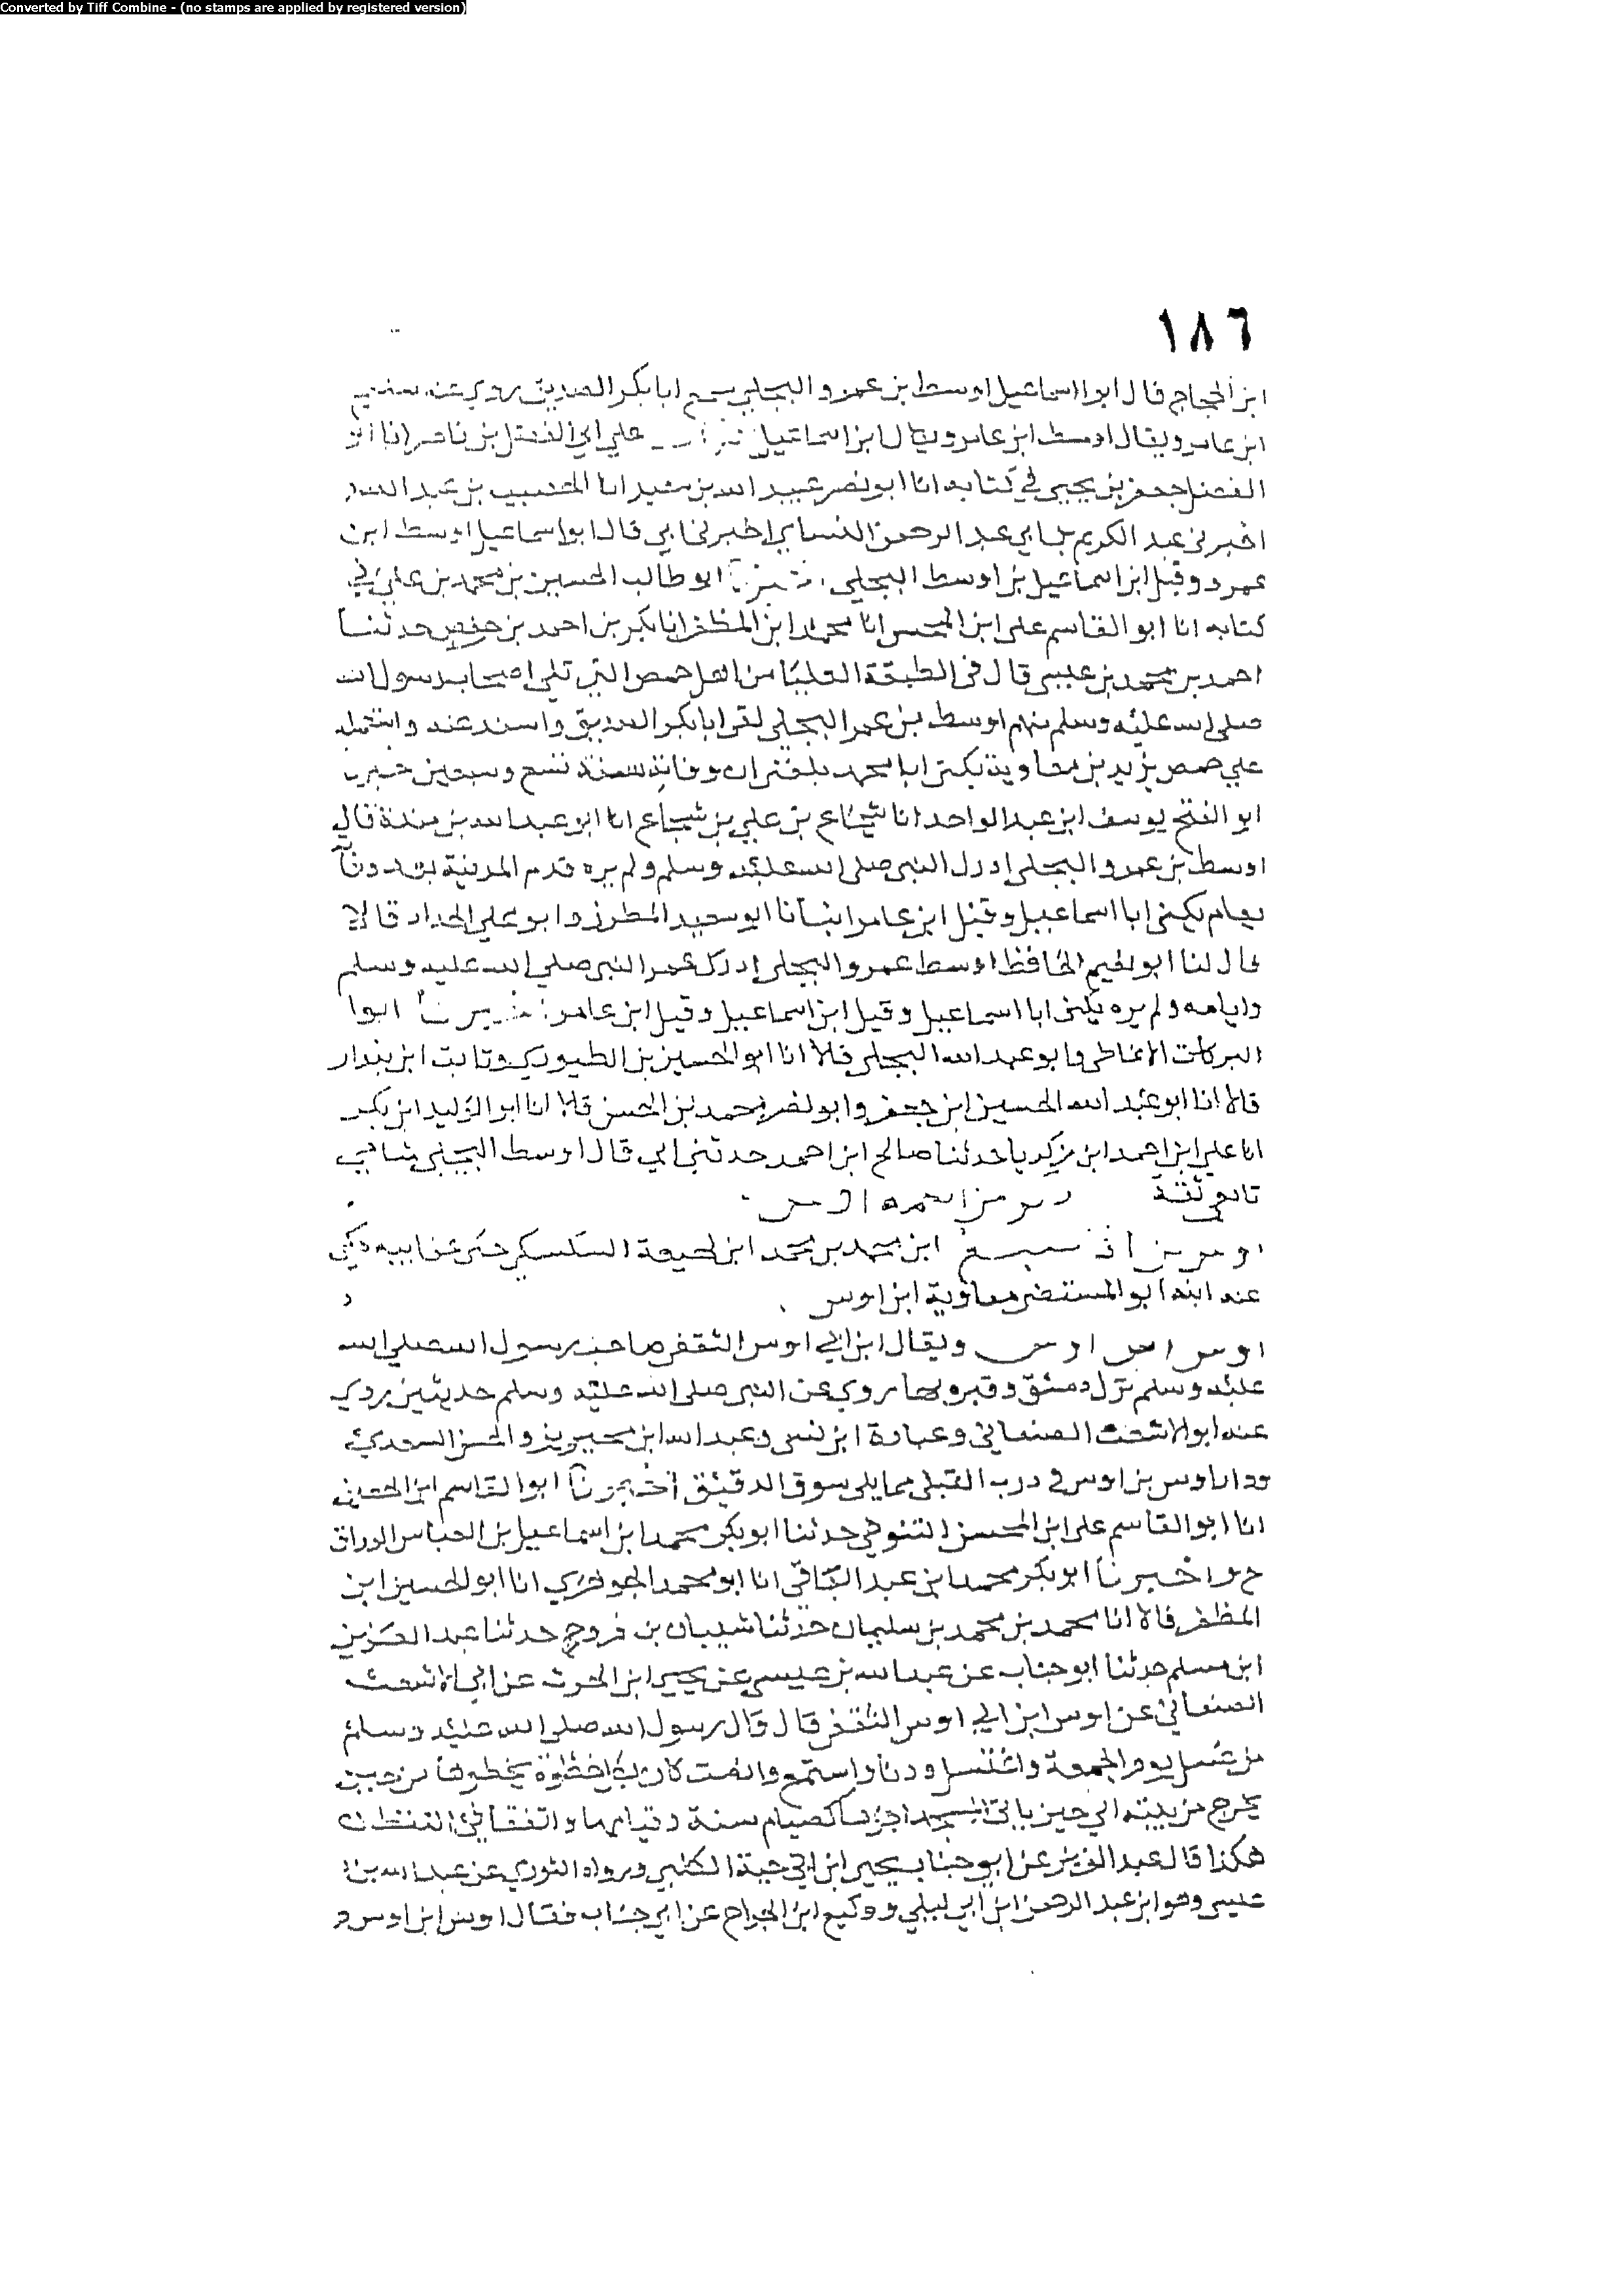 Converted by Tiff Combine - (no stamps are applied by registered version)
١٨٦
ابن الحجاج قال ابوا اسماعيل اوسط بن عمرو البجلي سمع ابا بكر الصديق روي عنه سليم
ابن عامر ويقال اوسط ابن عامر ويقال ابن اسماعيل علي ابي الفضل بن ناصر انا ابو
الفضل جعفر بن يحيي في كتابه انا ابو نصر عبيد الله بن سعيد انا الخصيب بن عبد الله
اخبرني عبد الكريم بن ابي عبد الرحمن النسايي اخبرني ابي قال ابوا اسماعيل اوسط ابن
عمرو وقيل ابن اسماعيل بن اوسط البجلي ابو طالب الحسين بن محمد بن علي في
كتابه انا ابو القاسم علي ابن المحسن انا محمد ابن المظفر انا بكر بن احمد بن حفص حدثنا
احمد بن محمد بن عيسى قال في الطبقة العليا من اهل حمص التي تلي اصحاب رسول الله
صلى الله عليه وسلم منهم اوسط بن عمر البجلي لقي ابا بكر الصديق واسند عنه واستعمله
علي حمص يزيد بن معاوية يكنى ابا محمد بلغني ان وفاته سنة تسع وسبعين
ابو الفتح يوسف ابن عبد الواحد انا شجاع بن علي بن شجاع انا ابو عبد الله بن مندة قال
اوسط بن عمرو البجلي ادرك النبي صلى الله عليه وسلم ولم يره قدم المدينة بعد وفاته
بعام يكنى ابا اسماعيل وقيل ابن عامر انبانا ابو سعيد المطرز وابو علي الحداد قالا
قال لنا ابو نعيم الحافظ اوسط عمرو البجلي ادرك عمر النبي صلي الله عليه وسلم
وايامه ولم يره يكنى ابا اسماعيل وقيل ابن اسماعيل وقيل ابن عامر ابوا
البركات الانماطي وابو عبد الله البجلي قالا انا ابو الحسين بن الطيوري وثابت ابن بندار
قالا انا ابو عبد الله الحسين ابن جعفر وابو نصر محمد بن الحسن قالا انا ابو الوليد ابن بكر
انا علي ابن احمد ابن زكريا حدثنا صالح ابن احمد حدثني ابي قال اوسط البجلي شامي
تابعي ثقة
اوس بن ابن محمد بن محمد ابن لهيعة السكسكي حكى عن ابيه حكى
عنه ابنه ابو المستضي معاوية ابن اوس
اوس ابن اوس ويقال ابن ابي اوس الثقفي صاحب رسول الله صلى الله
عليه وسلم نزل دمشق وقبره بها روي عن النبي صلى الله عليه وسلم حديثين روي
عنه ابو الاشعث الصنعاني وعبادة ابن نسي وعبد الله ابن محيريز والحسن السعدي
ودار اوس بن اوس في درب القبلي مما يلي سوق الدقيق اخبرنا ابو القاسم ابن الحصين
انا ابو القاسم علي ابن المحسن التنوخي حدثنا ابو بكر محمد ابن اسماعيل بن العباس الوراق
ح واخبرنا ابو بكر محمد ابن عبد الباقي انا ابو محمد الجوهري انا ابو الحسين ابن
المظفر قالا انا محمد بن محمد بن سليمان حدثنا شيبان بن فروخ حدثنا عبد العزيز
ابن مسلم حدثنا ابو جناب عن عبد الله بن عيسى عن يحيى ابن الحرث عن ابي الاشعث
الصنعاني عن اوس ابن ابي اوس الثقفي قال قال رسول الله صلى الله عليه وسلم
من غسل يوم الجمعة واغتسل ودنا واستمع وانصت كان بكل خطوة يخطوها من حيث
يخرج من بيته الي حين ياتي المسجد اجرها كصيام سنة وقيامها واتفقا في اللفظ
هكذا قال عبد العزيز عن ابي جناب يحيى ابن ابي حية الكلبي ورواه الثوري عن عبد الله بن
عيسى وهو ابن عبد الرحمن ابن ابي ليلي ووكيع ابن الجراح عن ابي جناب فقال اوس ابن اوس و